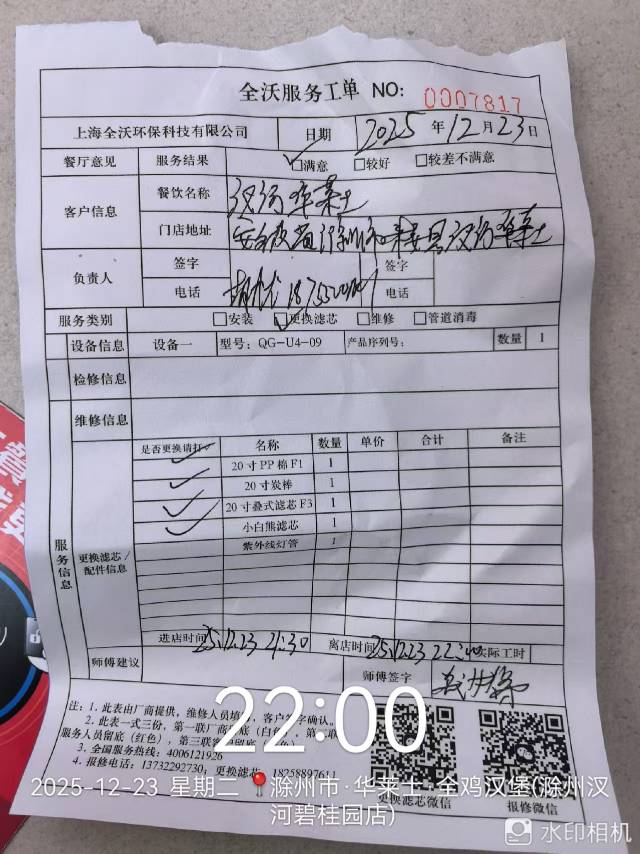 全沃服务工单 NO: 0007817
上海全沃环保科技有限公司 日期 2025年12月23日
餐厅意见 服务结果 满意 较好 较差不满意
客户信息 餐饮名称 汉河华莱士
门店地址 安徽省滁州市来安县汉河华莱士
负责人 签字 签字
电话 电话
服务类别 安装 更换滤芯 维修 管道消毒
设备信息 设备一 型号: QG-U4-09 产品序列号: 数量 1
检修信息
维修信息
服务信息 更换滤芯/配件信息
是否更换请打 名称 数量 单价 合计 备注
20寸PP棉F1 1
20寸炭棒 1
20寸叠式滤芯F3 1
小白熊滤芯 1
紫外线灯管 1
进店时间 25.12.23 21:30 离店时间 25.12.23 22:00 实际工时
师傅建议 师傅签字
注: 1. 此表由厂商提供, 维修人员填 客户签字确认。
2. 此表一式三份, 第一联厂商 底 (白色)
服务人员留底 (红色), 第三联 留底
3. 全国服务热线: 4006121926
4. 报修电话: 13732292730; 更换滤芯 18258897611
更换滤芯微信 报修微信
22:00
2025-12-23 星期二 滁州市·华莱士·全鸡汉堡(滁州汉
河碧桂园店)
水印相机